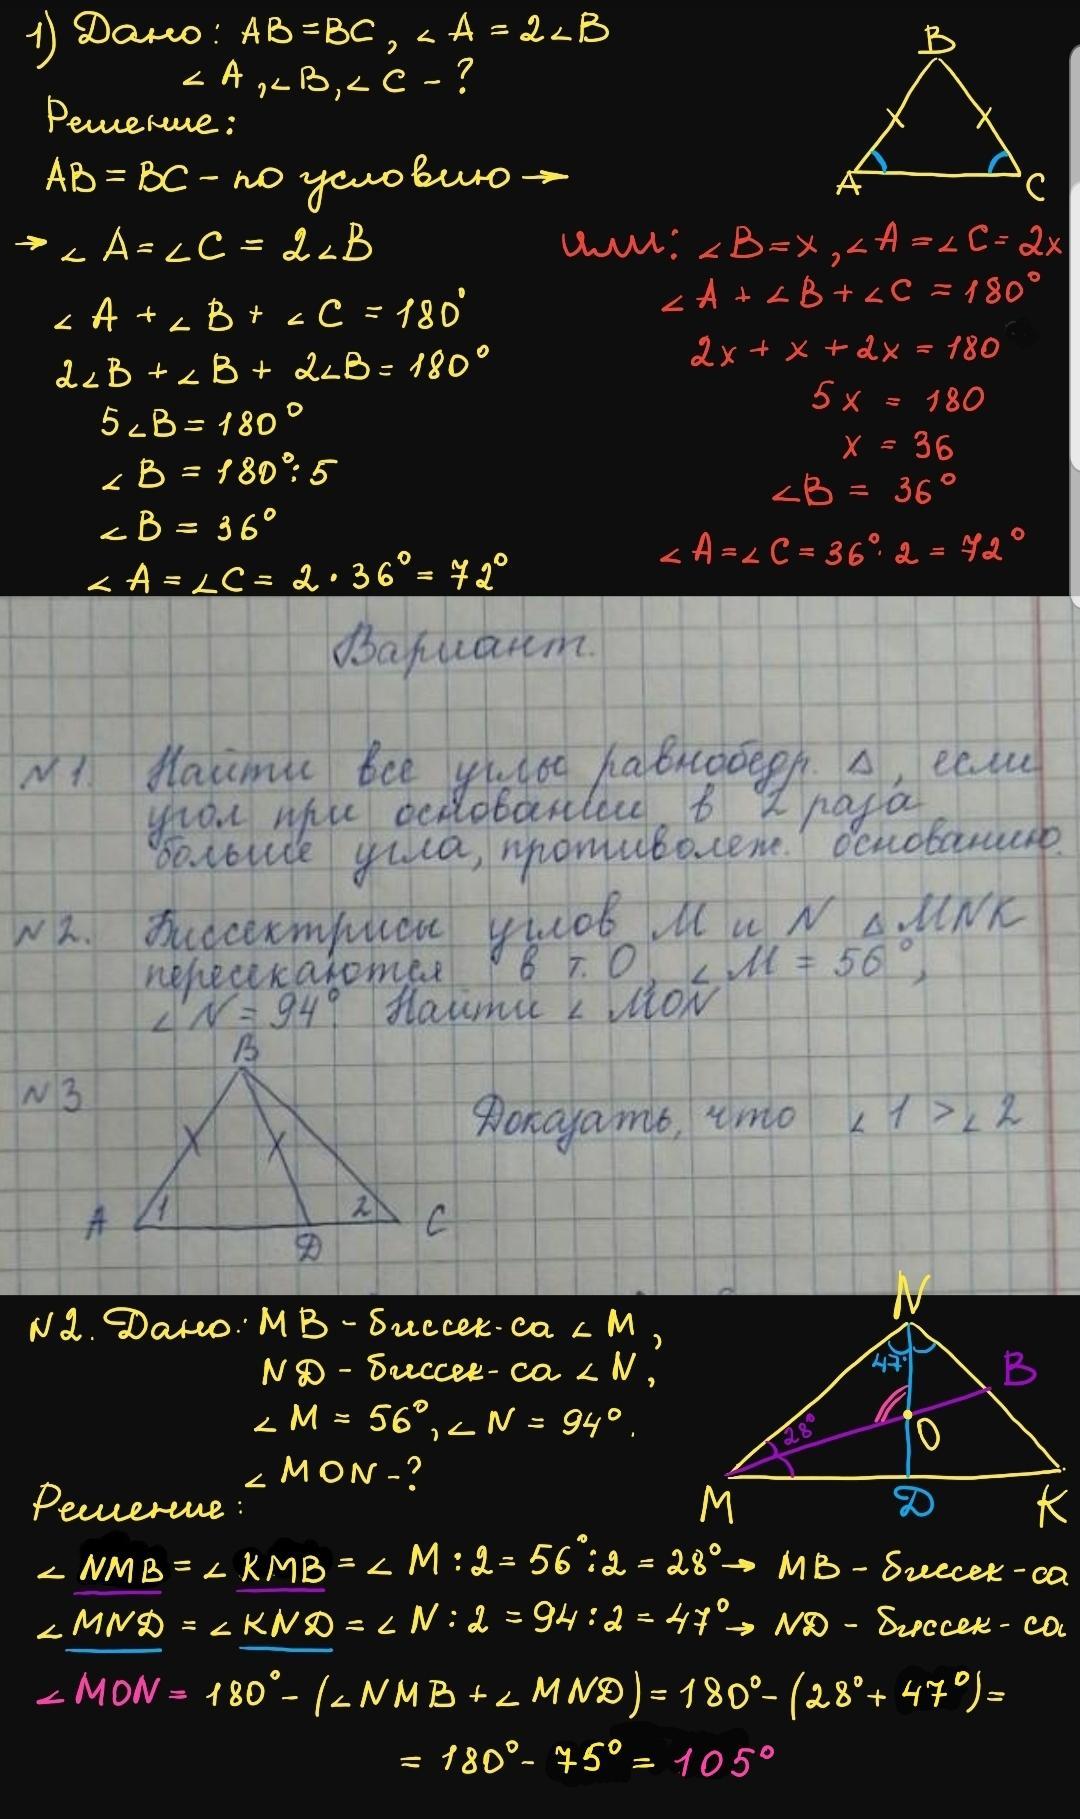 1) Дано: AB = BC, ∠A = 2∠B
∠A, ∠B, ∠C - ?
Решение:
AB = BC - по условию →
→ ∠A = ∠C = 2∠B
∠A + ∠B + ∠C = 180°
2∠B + ∠B + 2∠B = 180°
5∠B = 180°
∠B = 180° : 5
∠B = 36°
∠A = ∠C = 2 · 36° = 72°
B
A
C
или: ∠B = x, ∠A = ∠C = 2x
∠A + ∠B + ∠C = 180°
2x + x + 2x = 180
5x = 180
x = 36
∠B = 36°
∠A = ∠C = 36° · 2 = 72°
Вариант.
N1. Найти все углы равнобедр. △, если
угол при основании в 2 раза
больше угла, противолеж. основанию.
N2. Биссектрисы углов M и N △MNK
пересекаются в т. O, ∠M = 56°,
∠N = 94°. Найти ∠MON
N3
B
A
1
2
C
D
Доказать, что ∠1 > ∠2
N2. Дано: MB - биссек-са ∠M,
ND - биссек-са ∠N,
∠M = 56°, ∠N = 94°.
∠MON - ?
N
47°
B
28°
O
M
D
K
Решение:
∠NMB = ∠KMB = ∠M : 2 = 56° : 2 = 28° → MB - биссек-са
∠MND = ∠KND = ∠N : 2 = 94 : 2 = 47° → ND - биссек-са
∠MON = 180° - (∠NMB + ∠MND) = 180° - (28° + 47°) =
= 180° - 75° = 105°